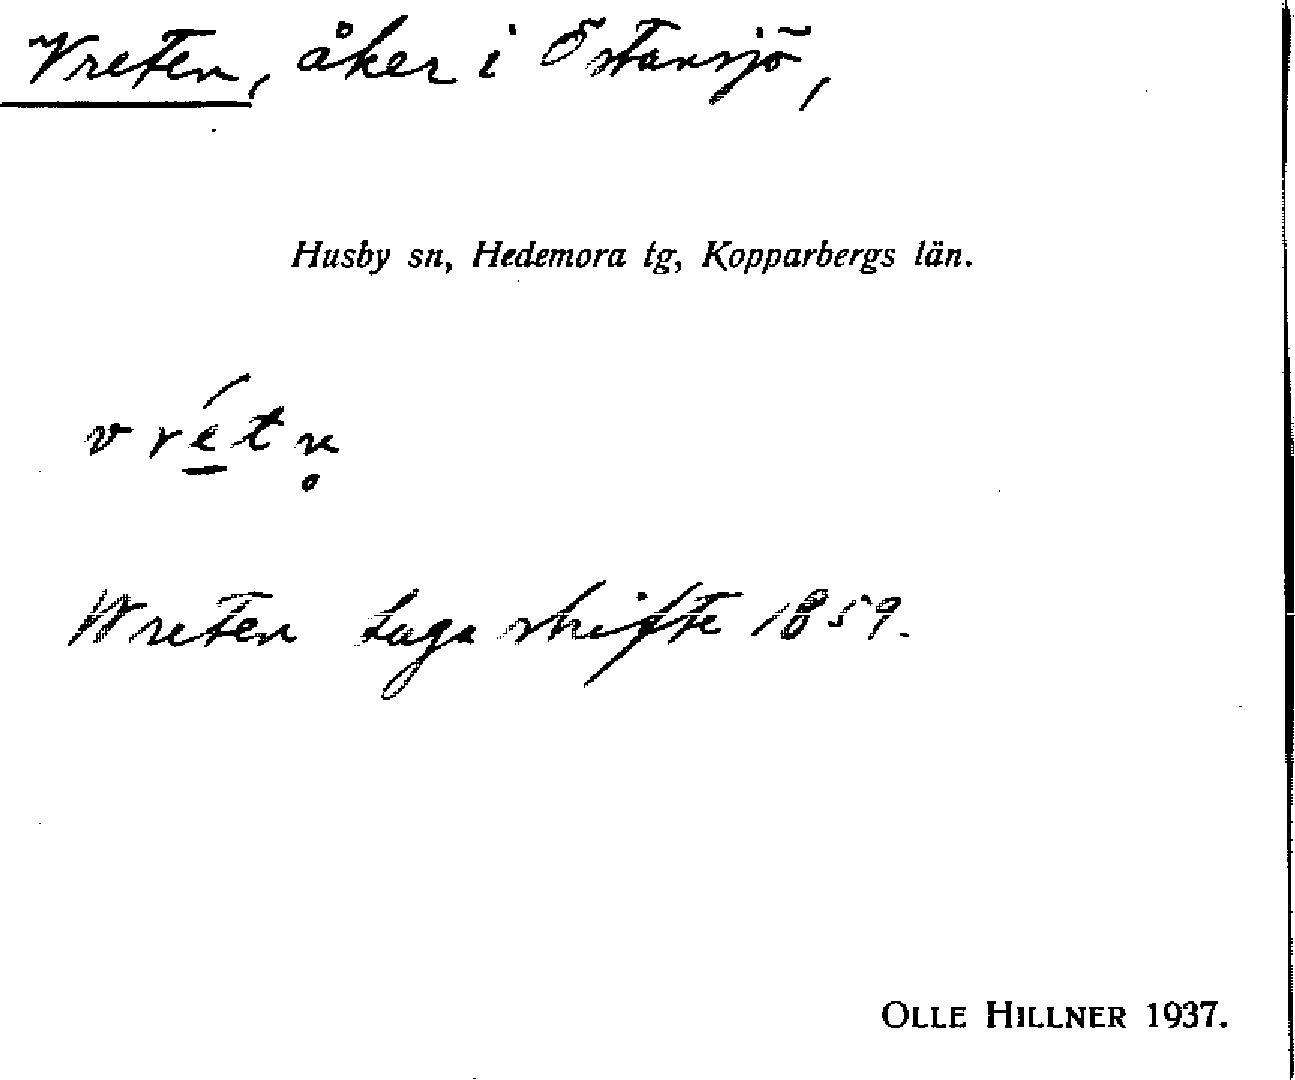 Vreten, åker i Östansjö,
Husby sn, Hedemora tg, Kopparbergs län.
vré̱tn̥
Wreten Laga skifte 1859.
OLLE HILLNER 1937.